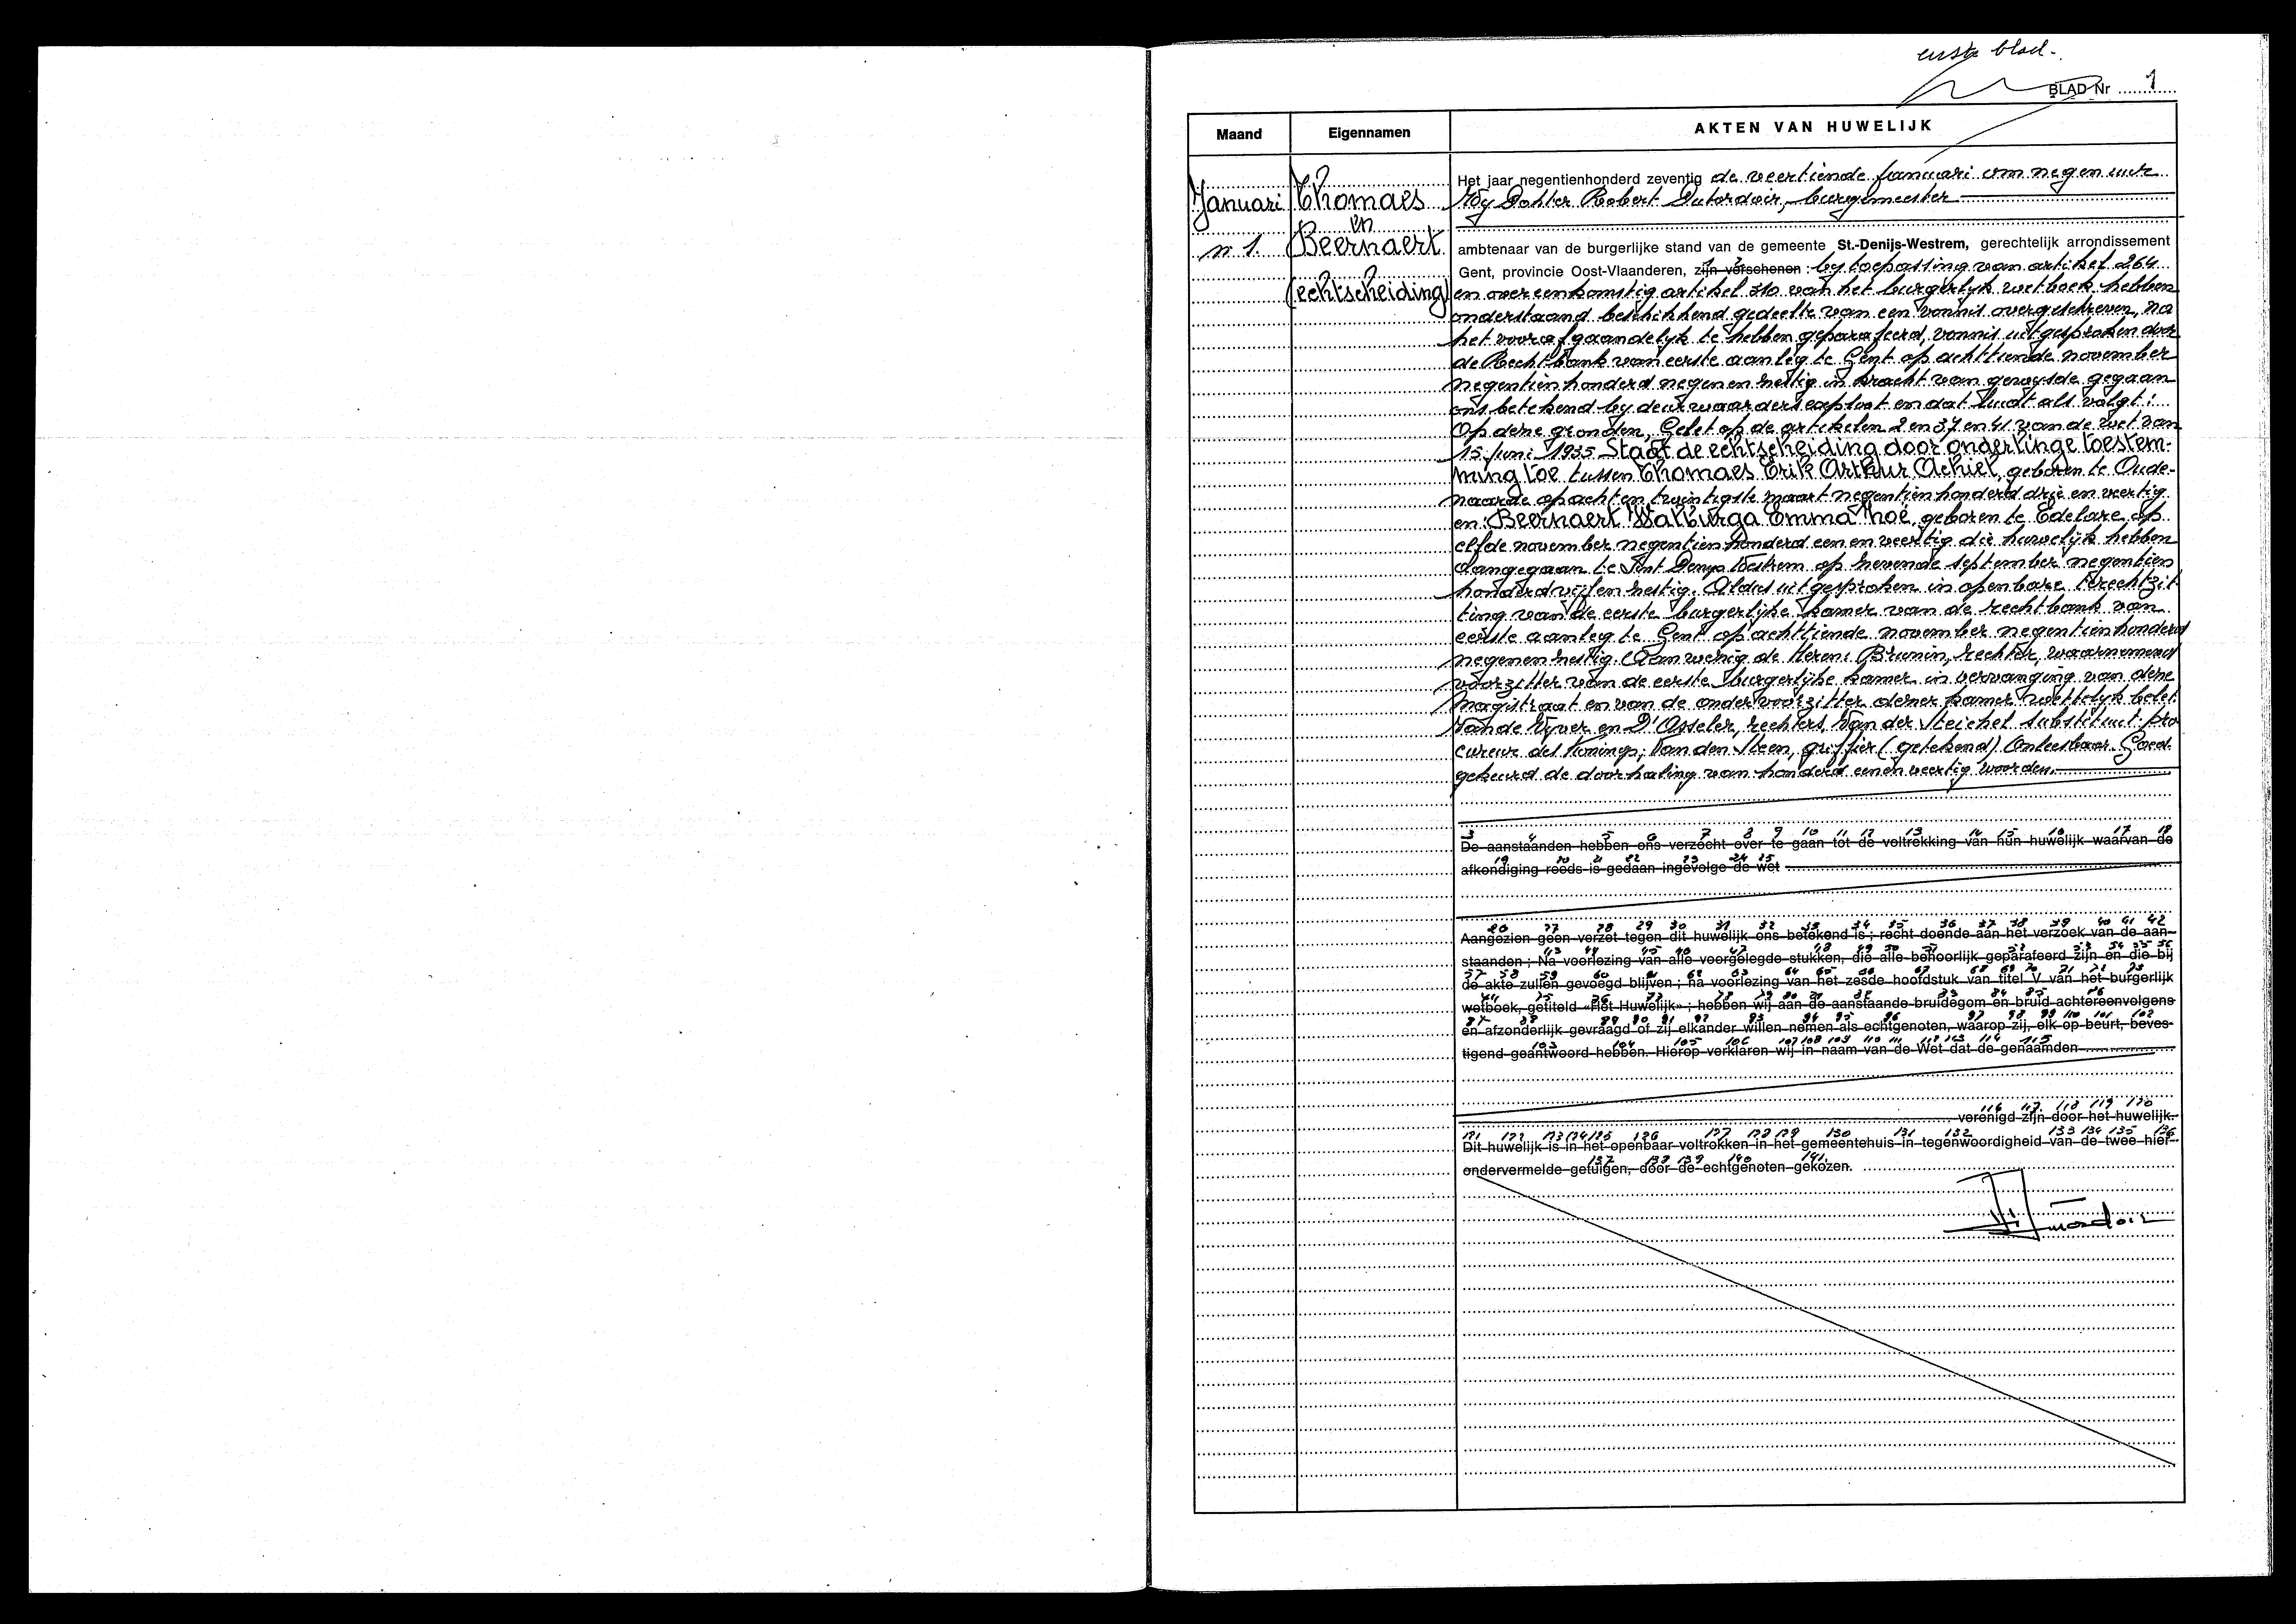 eerste blad.
BLAD Nr 1
Maand
Eigennamen
AKTEN VAN HUWELIJK
Januari
n 1.
Thomaes
en
Beernaert
(echtscheiding)
Het jaar negentienhonderd zeventig de veertiende Januari om negen uur
Wij Dokter Robert Dutordoir, burgemeester
ambtenaar van de burgerlijke stand van de gemeente St.-Denijs-Westrem, gerechtelijk arrondissement
Gent, provincie Oost-Vlaanderen, zijn verschenen : by toepassing van artikel 264
en overeenkomstig artikel 310 van het burgerlyk wetboek hebben
onderstaand beschikkend gedeelte van een vonnis overgeschreven, na
het voorafgaandelyk te hebben geparafeerd, vonnis uitgesproken door
de Rechtbank van eerste aanleg te Gent op achttiende november
negentienhonderd negenenzestig in kracht van gewysde gegaan
ons betekend by deurwaardersexploot en dat luidt als volgt:
Op deze gronden, Gelet op de artikelen 2 en 37 en 41 van de wet van
15 juni 1935 Staat de echtscheiding door onderlinge toestem-
ming toe tussen Thomaes Erik Arthur Achiel, geboren te Oude-
naarde op achtentwintigste maart negentienhonderd drie en veertig
en: Beernaert Walburga Emma Zhoë, geboren te Edelare op
elfde november negentienhonderd eenenveertig die huwelijk hebben
aangegaan te Sint Denys Westrem op zevende september negentien
honderd vijfenzestig. Aldus uitgesproken in openbare terechtzit
ting van de eerste burgerlijke kamer van de rechtbank van
eerste aanleg te Gent op achttiende november negentienhonderd
negenenzestig. Aanwezig de Heren: Brunin, rechter, waarnemend
voorzitter van de eerste burgerlijke kamer in vervanging van deze
magistraat en van de ondervoorzitter dezer kamer wettelyk belet
Van de Vyver en D'Asseler, rechters, Van der Steichel substituut-pro
cureur des Konings; Van den Steen, griffier (getekend) Onleesbaar. Goed-
gekeurd de doorhaling van honderd eenenveertig woorden.
De aanstaanden hebben ons verzocht over te gaan tot de voltrekking van hun huwelijk waarvan de
afkondiging reeds is gedaan ingevolge de wet
Aangezien geen verzet tegen dit huwelijk ons betekend is ; recht doende aan het verzoek van de aan-
staanden ; Na voorlezing van alle voorgelegde stukken, die alle behoorlijk geparafeerd zijn en die bij
de akte zullen gevoegd blijven ; na voorlezing van het zesde hoofdstuk van titel V van het burgerlijk
wetboek, getiteld «Het Huwelijk» ; hebben wij aan de aanstaande bruidegom en bruid achtereenvolgens
en afzonderlijk gevraagd of zij elkander willen nemen als echtgenoten, waarop zij, elk op beurt, beves-
tigend geantwoord hebben. Hierop verklaren wij in naam van de Wet dat de genaamden
verenigd zijn door het huwelijk.
Dit huwelijk is in het openbaar voltrokken in het gemeentehuis in tegenwoordigheid van de twee hier-
ondervermelde getuigen, door de echtgenoten gekozen.